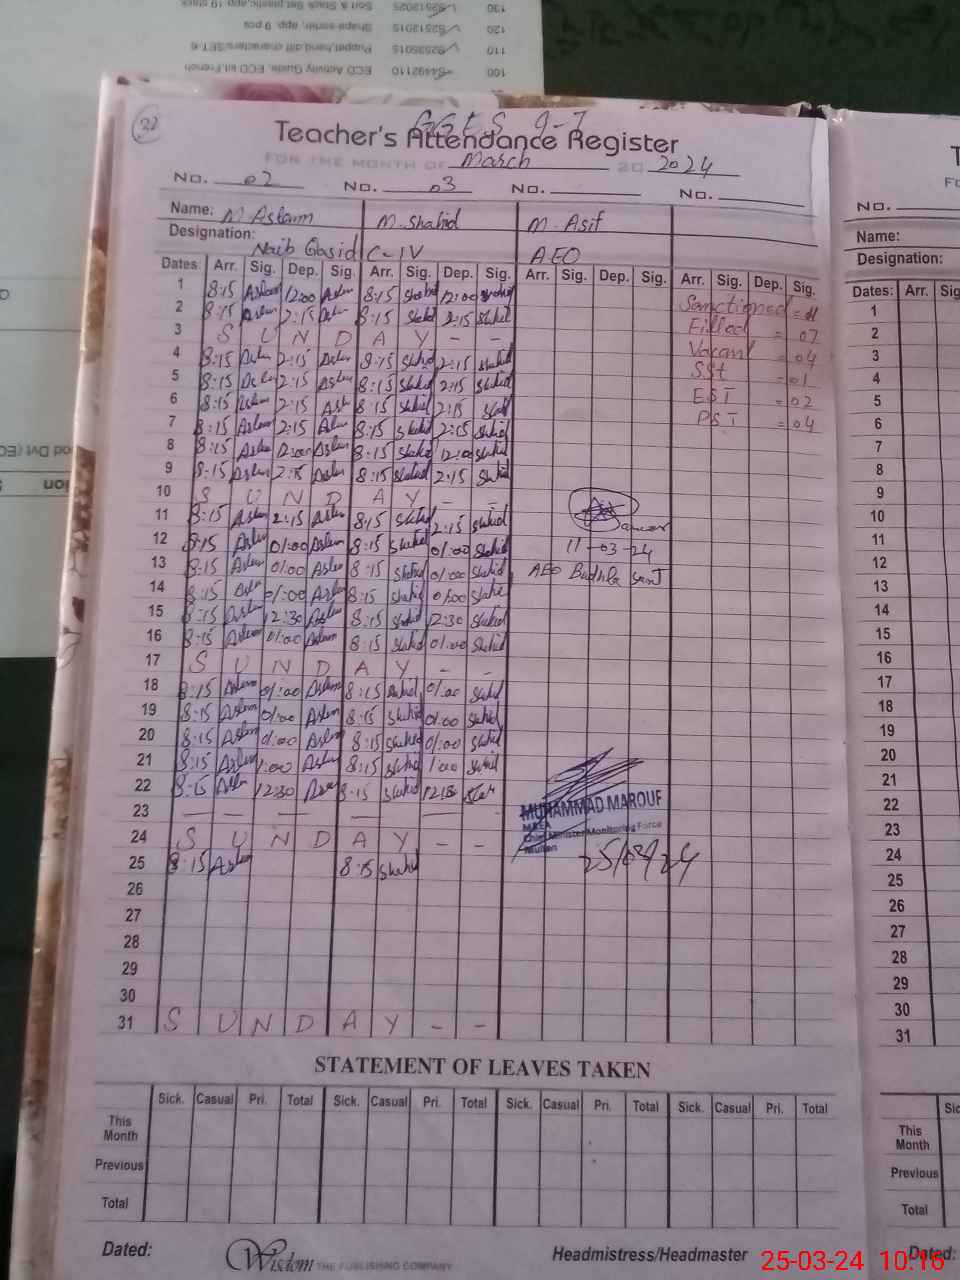 130 52512025 Soft & Stack Set, plastic, app. 19 stack
120 52512015 Shape-sorter, app. 9 pcs
110 52535015 Puppet, hand, diff characters/SET-6
100 54492110 ECD Activity Guide, ECD kit, French
32
G.G.E.S 9-T
Teacher's Attendance Register
FOR THE MONTH OF March 20 2024
No. 02 No. 03 No. No.
Name: M. Aslam M. Shahid M. Asif
Designation: Naib Qasid C-IV AEO
Dates: Arr. Sig. Dep. Sig. Arr. Sig. Dep. Sig. Arr. Sig. Dep. Sig. Arr. Sig. Dep. Sig.
1 8:15 Aslam 12:00 Aslm 8:15 Shahid 12:00 Shahid
2 8:15 Aslm 2:15 Aslm 8:15 Shahid 2:15 Shahid
3 S U N D A Y - -
4 8:15 Aslm 2:15 Aslm 8:15 Shahid 2:15 Shahid
5 8:15 Aslm 2:15 Aslm 8:15 Shahid 2:15 Shahid
6 8:15 Aslm 2:15 Aslm 8:15 Shahid 2:15 Shahid
7 8:15 Aslam 2:15 Aslm 8:15 Shahid 2:15 Shahid
8 8:15 Aslam 12:00 Aslam 8:15 Shahid 12:00 Shahid
9 8:15 Aslam 2:15 Aslam 8:15 Shahid 2:15 Shahid
10 S U N D A Y - -
11 8:15 Aslm 2:15 Aslam 8:15 Shahid 2:15 Shahid
12 8:15 Aslm 01:00 Aslam 8:15 Shahid 01:00 Shahid
13 8:15 Aslm 01:00 Aslam 8:15 Shahid 01:00 Shahid
14 8:15 Aslm 01:00 Aslam 8:15 Shahid 01:00 Shahid
15 8:15 Aslam 12:30 Aslam 8:15 Shahid 12:30 Shahid
16 8:15 Aslam 01:00 Aslam 8:15 Shahid 01:00 Shahid
17 S U N D A Y - -
18 8:15 Aslam 01:00 Aslam 8:15 Shahid 01:00 Shahid
19 8:15 Aslam 01:00 Aslam 8:15 Shahid 01:00 Shahid
20 8:15 Aslam 01:00 Aslam 8:15 Shahid 01:00 Shahid
21 8:15 Aslam 1:00 Aslam 8:15 Shahid 1:00 Shahid
22 8:15 Aslm 12:30 8:15 Shahid 12:30
23 — — — — — — — -
24 S U N D A Y - -
25 8:15 Aslam 8:15 Shahid
26
27
28
29
30
31 S U N D A Y - -
Sanctioned = 11
Filled = 07
Vacant = 04
SSt = 01
EST = 02
PST = 04
11-03-24
AEO Budhla Sant
MUHAMMAD MAROUF
MEA
Chief Minister Monitoring Force
Multan
25/03/24
STATEMENT OF LEAVES TAKEN
Sick. Casual Pri. Total Sick. Casual Pri. Total Sick. Casual Pri. Total Sick. Casual Pri. Total
This Month
Previous
Total
Dated: Wisdom THE PUBLISHING COMPANY Headmistress/Headmaster
No.
Name:
Designation:
Dates: Arr.
1
2
3
4
5
6
7
8
9
10
11
12
13
14
15
16
17
18
19
20
21
22
23
24
25
26
27
28
29
30
31
This Month
Previous
Total
Dated:
25-03-24 10:16